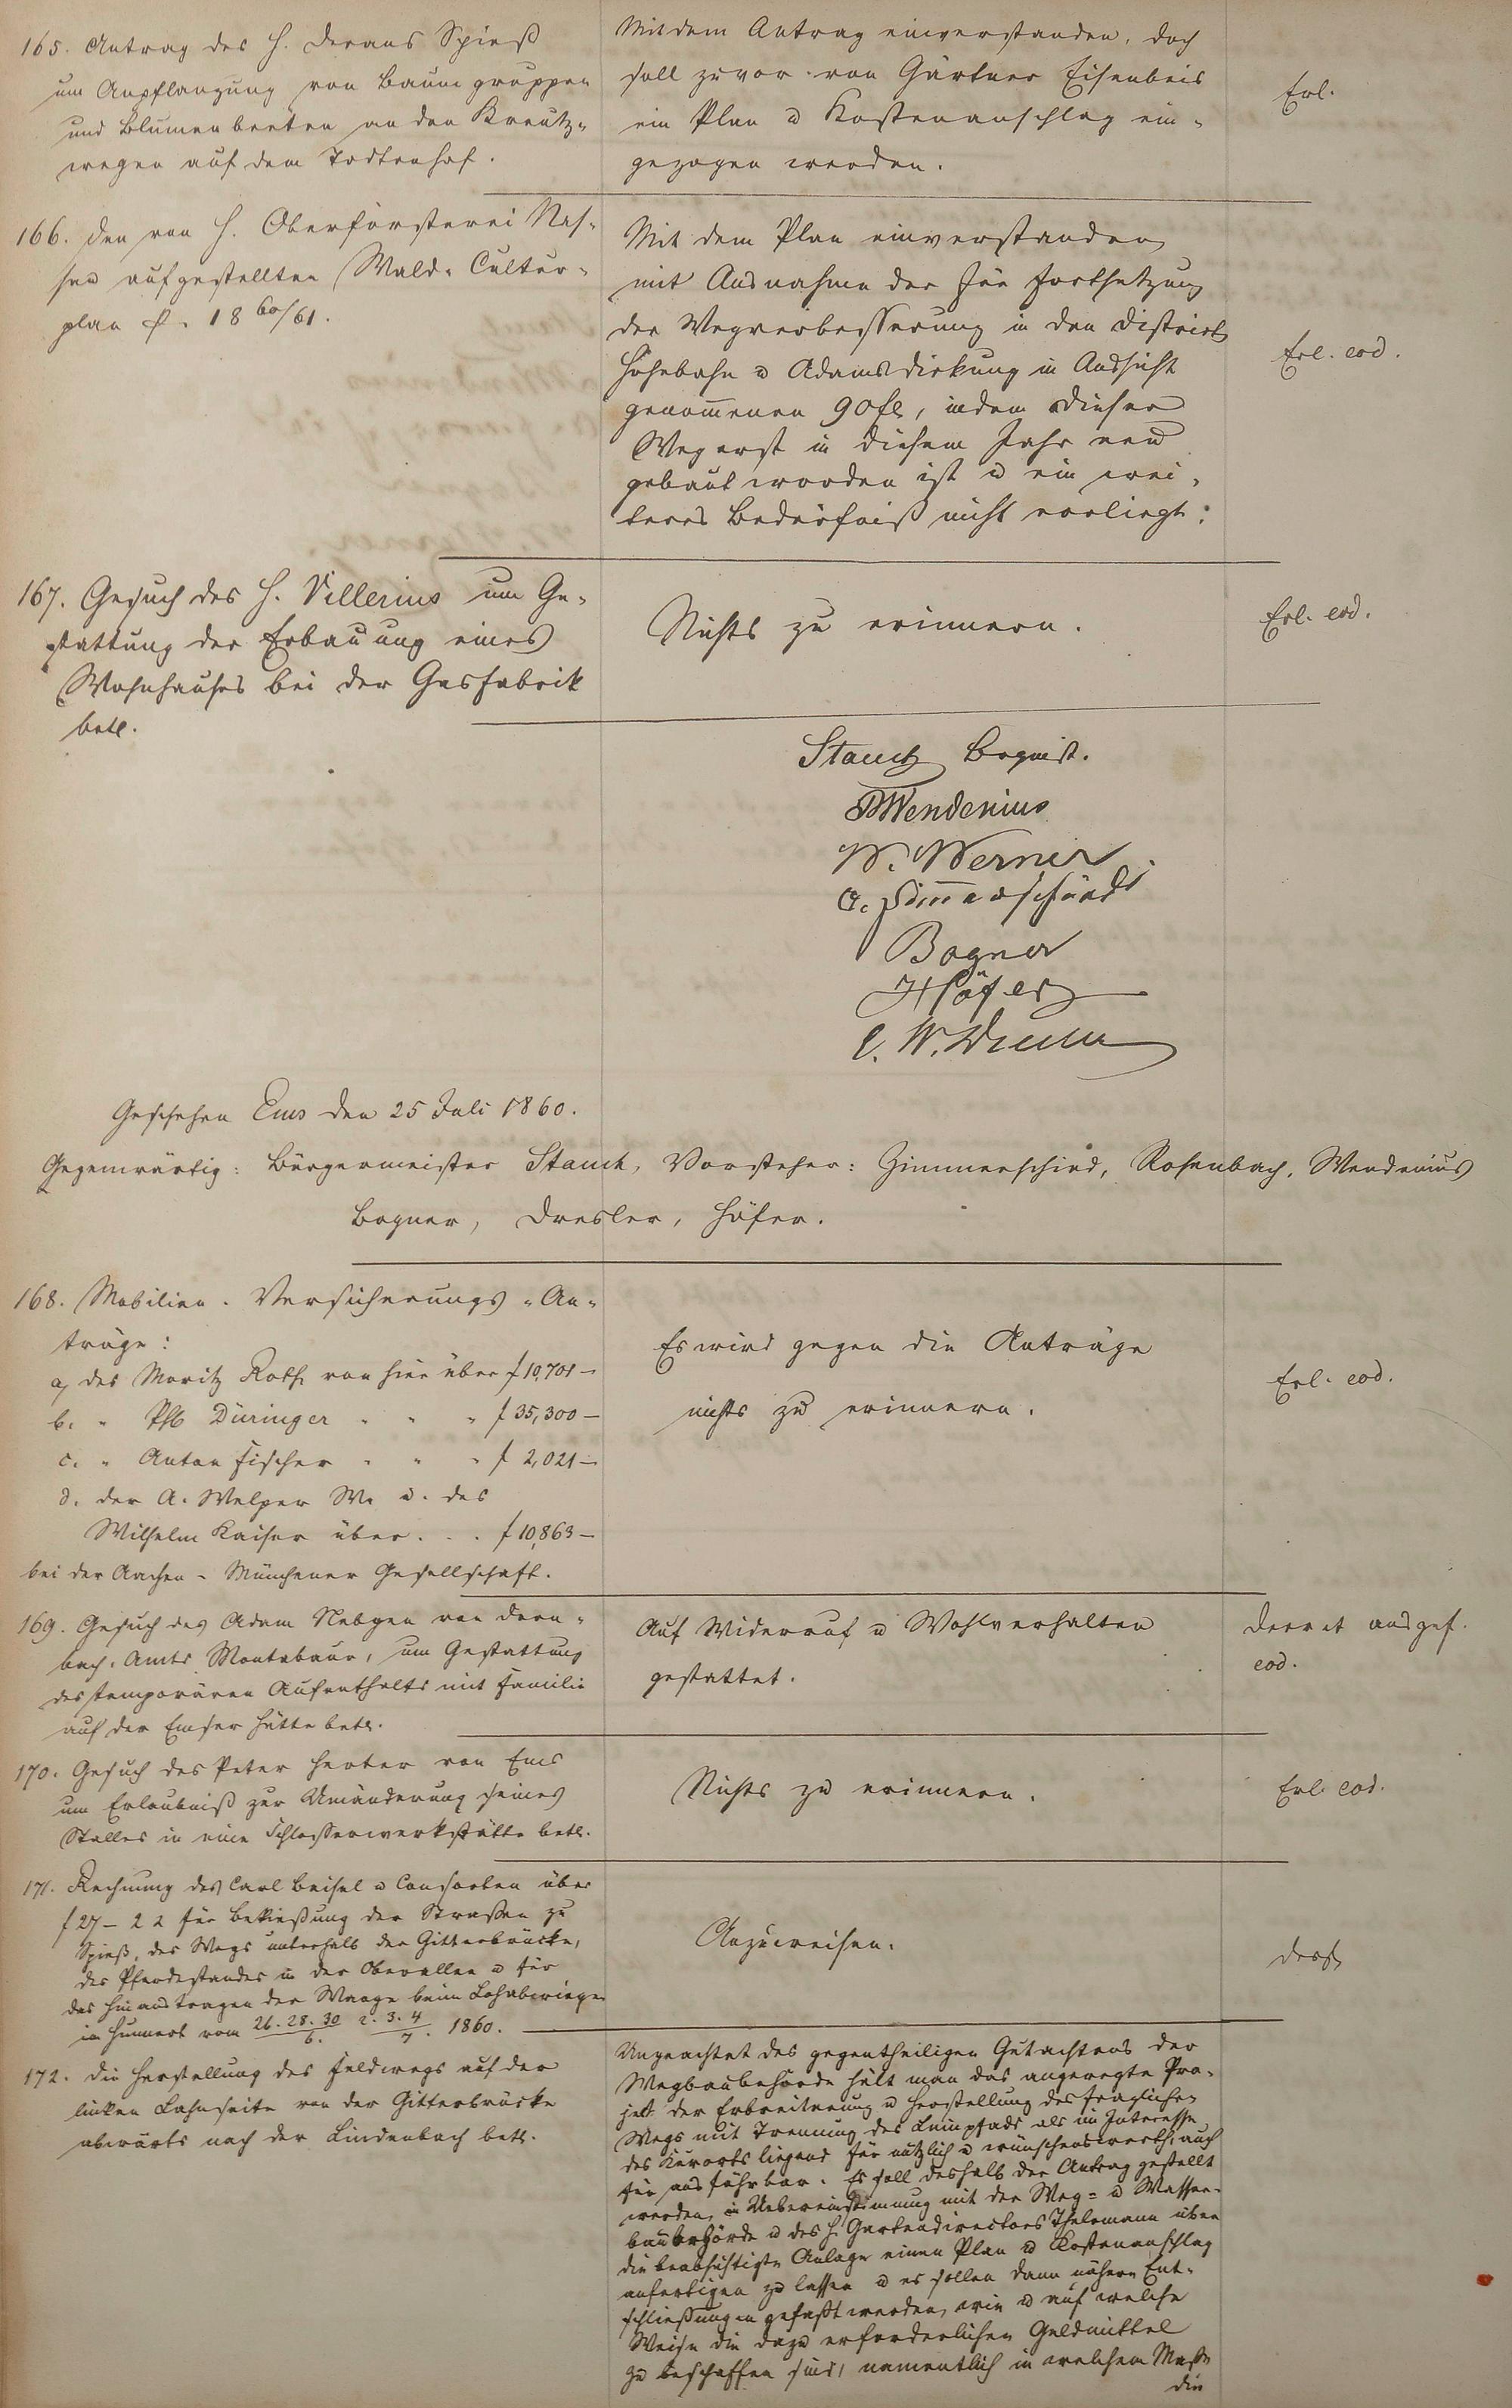 165. Antrag des H. Decans Spieß
um Anpflanzung von Baumgruppen
und Blumenbeeten an den Kreutz-
wegen auf dem Todtenhof.
Mit dem Antrag einverstanden, doch
soll zuvor von Gärtner Eisenbeis
ein Plan u Kostenanschlag ein-
gezogen werden.
Erl.
166. Den von H. Oberförsterei Nas-
sau aufgestellten Wald-Cultur-
plan p. 1860/61.
Mit dem Plan einverstanden,
mit Ausnahme der für Fortsetzung
der Wegverbesserung in den District
Höhebahn u Adamsdickung in Aussicht
genommenen 90 fl, indem dieser
Weg erst in diesem Jahr neu
gebaut worden ist u ein wei-
teres Bedürfniß nicht vorliegt.
Erl. eod.
167. Gesuch des H. Villerius um Ge-
stattung der Erbauung eines
Wohnhauses bei der Gasfabrik
betr.
Nichts zu erinnern.
Erl. eod.
Stauch Bgmst.
Wendenius
W. Werner
Bogner
Höfer
Geschehen Ems den 25 Juli 1860.
Gegenwärtig: Bürgermeister Stauch, Vorsteher: Zimmerschied, Rosenbach, Wendenius
Bogner, Dresler, Höfer.
168. Mobilien-Versicherungs-An-
träge:
a, des Moritz Roth von hier über f 10,701 –
b. " Phil Düringer " " " f 35,300 –
c. " Anton Fischer " " " f 2,021 –
d. der A. Welper We u. des
Wilhelm Kaiser über . . f 10,863 –
bei der Aachen-Münchener Gesellschaft.
Es wird gegen die Anträge
nichts zu erinnern.
Erl. eod.
169. Gesuch des Adam Nebgen von Dern-
bach, Amts Montabaur, um Gestattung
des temporären Aufenthalts mit Familie
auf der Emser Hütte betr.
Auf Widerruf u Wohlverhalten
gestattet.
Decret ausgef.
eod.
170. Gesuch des Peter Herber von Ems
um Erlaubniß zur Umänderung seines
Stalles in eine Schlosserwerkstätte betr.
Nichts zu erinnern.
Erl. eod.
171. Rechnung des Carl Beisel u Consorten über
f 27 – 22 für Bekießung der Straßen zu
Spieß, des Wegs unterhalb der Gitterbrücke,
des Pferdestandes in der Oberallee u für
das Hinaustragen der Waage beim Lohabwiegen
im Hunnert vom 26. 28. 30/6. 2. 3. 4/7. 1860.
Anzuweisen.
172. Die Herstellung des Feldwegs auf der
linken Lahnseite von der Gitterbrücke
abwärts nach der Lindenbach betr.
Ungeachtet des gegentheiligen Gutachtens der
Wegbaubehörde hält man das angeregte Pro-
jekt der Erbreiterung u Herstellung des fraglichen
Wegs mit Trennung des Leinpfads als im Interesse
des Kurorts liegend für nützlich u wünschenswerth, auch
für ausführbar. Es soll deshalb der Antrag gestellt
werden, in Uebereinstimmung mit der Weg- u Wasser-
baubehörde u des H. Gartendirectors Thelemann über
die beabsichtigte Anlage einen Plan u Kostenanschlag
anfertigen zu lassen u es sollen dann nähere Ent-
schließungen gefaßt werden, wie u auf welche
Weise die dazu erforderlichen Geldmittel
zu beschaffen sind, namentlich in welchem Maße
die